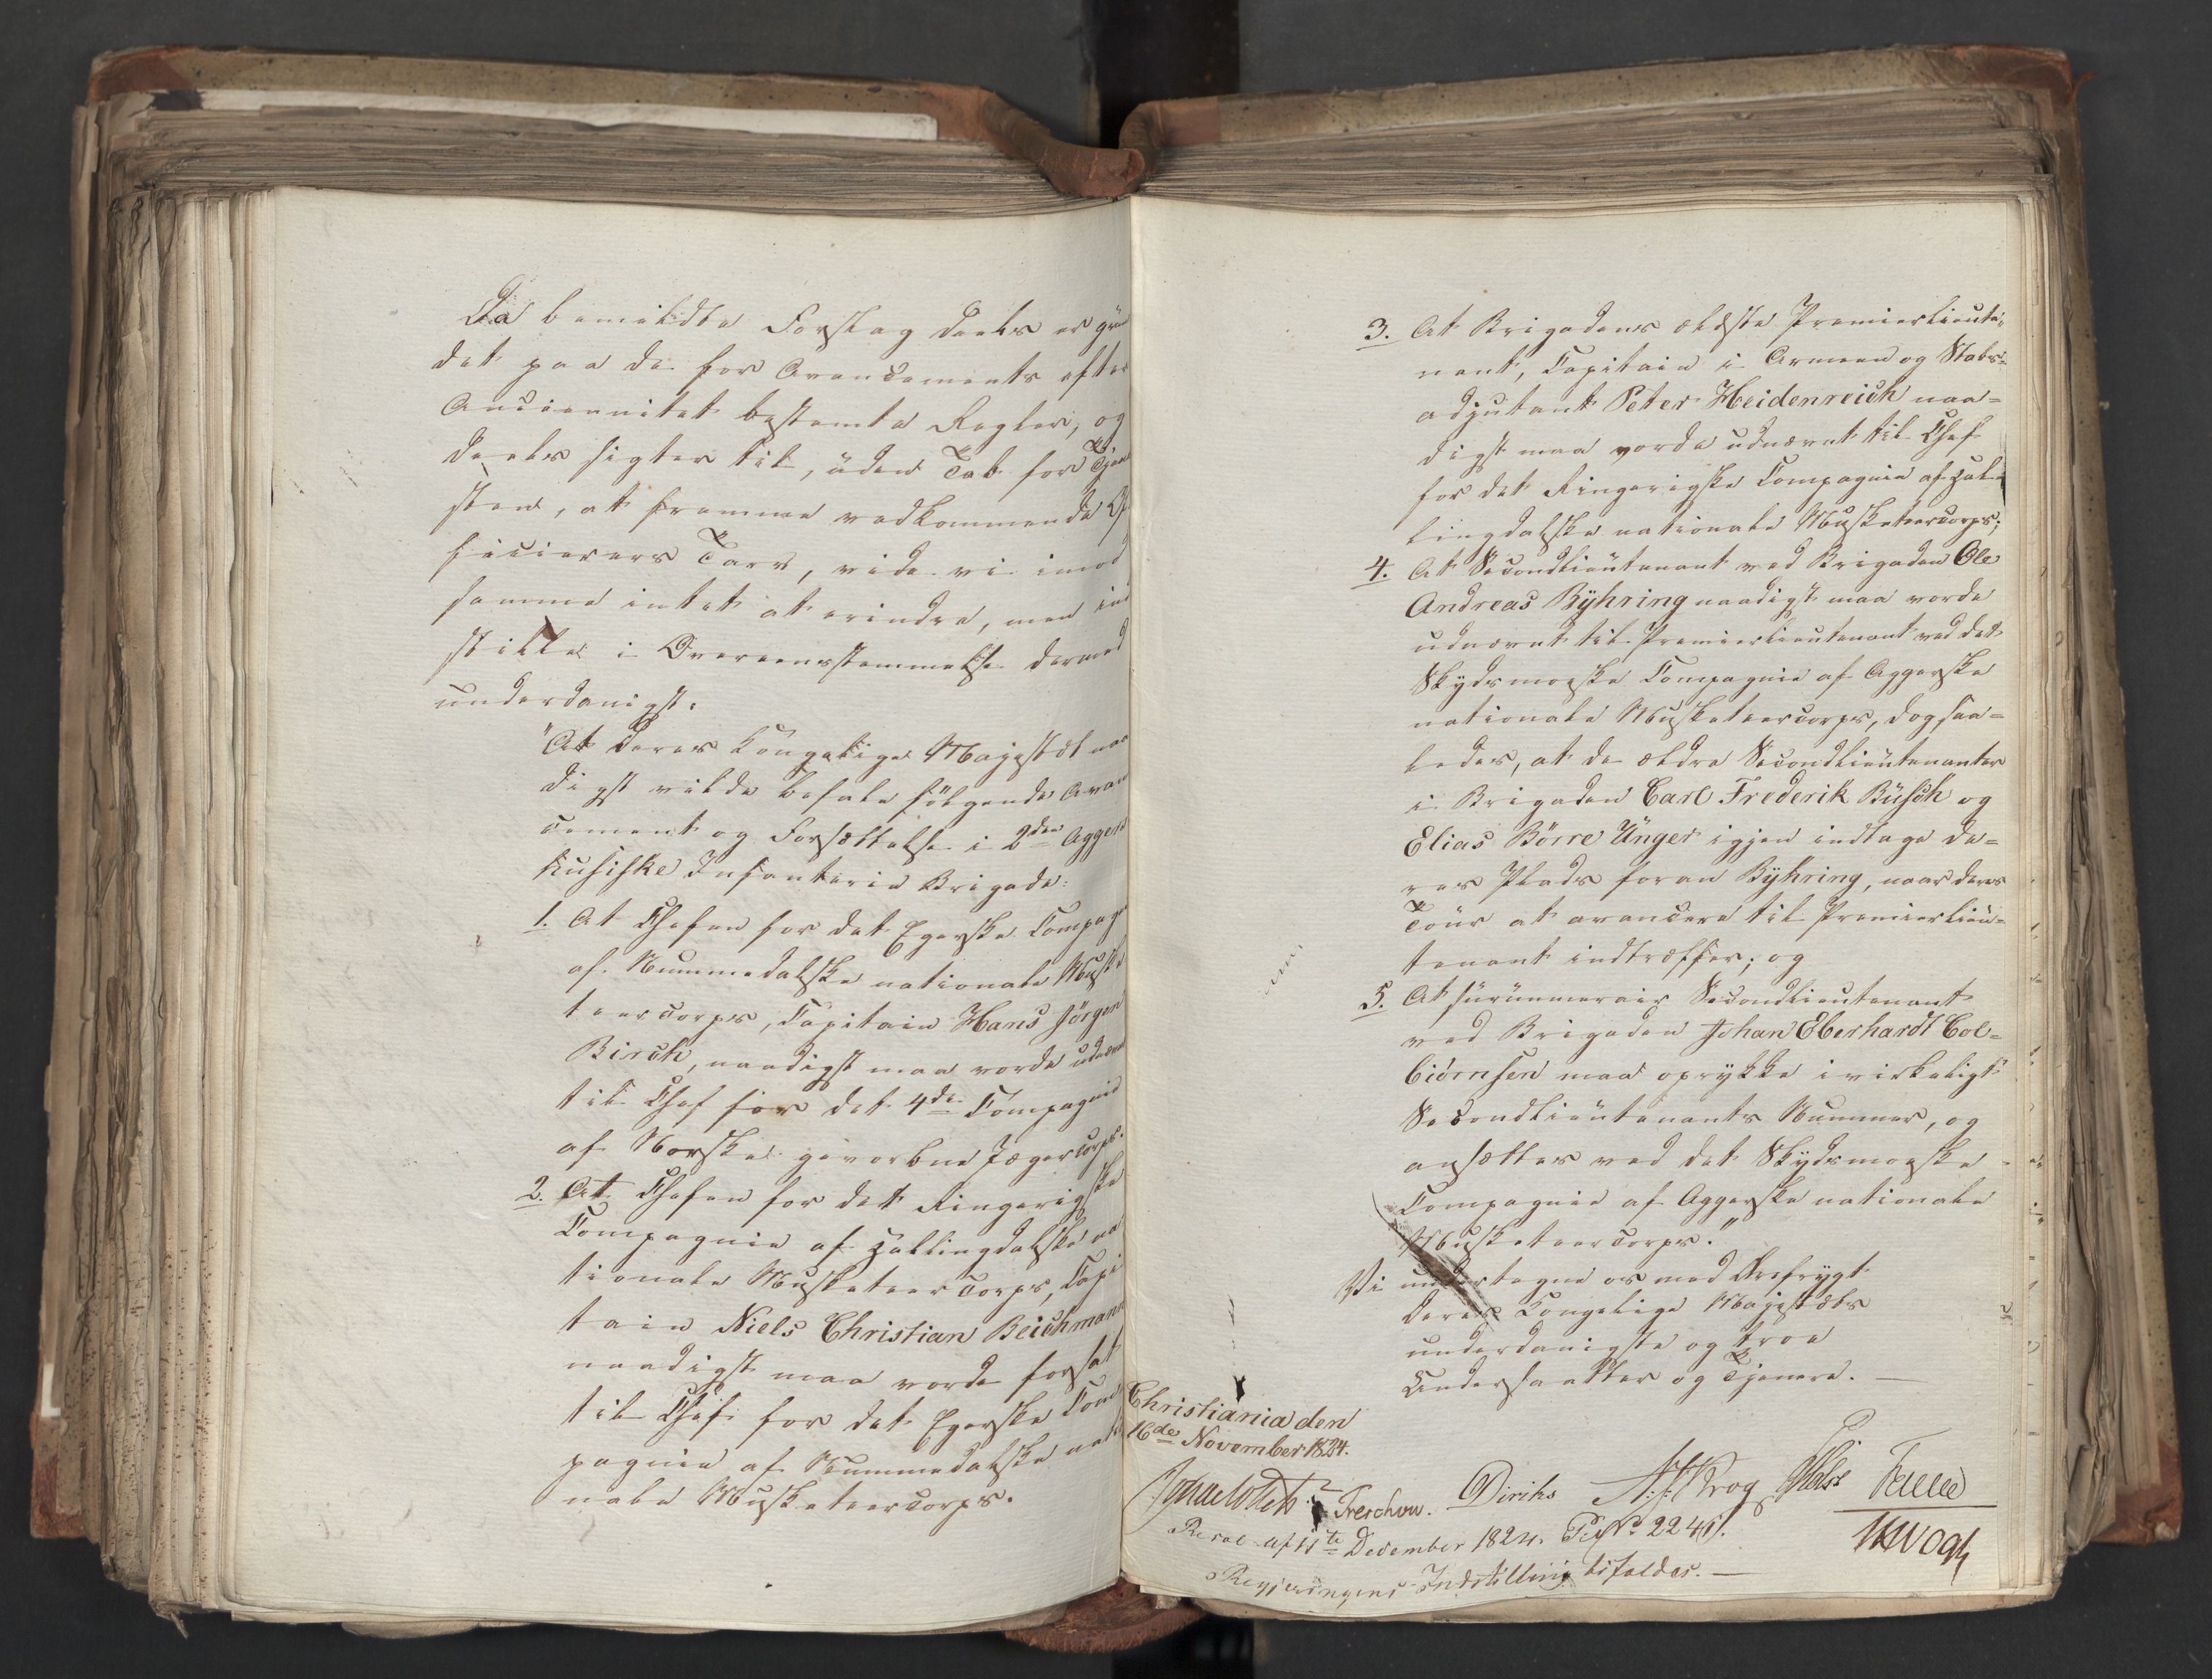 Da bemeldte Forslag deels er grun
det paa de for Avancements efter
Anciennitet bestemte Regler, og
deels sigter til, uden Tab for Tjene
sten, at fremme vedkommende Of
ficierers Tarv, vide vi imod
samme intet at erindre, men ind
stille i Overeensstemmelse dermed
underdanigst:
"At Deres Kongelige Majestæt naa
digst vilde befale følgende Avan
cement og Forsættelse i 2den Aggers
husiske Infanterie Brigade:
1. At Chefen for det Egerske Compagn
af Nummedalske nationale Muske
teercorps, Capitain Hans Jörgen
Birch, naadigst maa vorde udnævnt
til Chef for det 4de Compagnie
af Norske gevorbne Jægercorps.
2. At Chefen for det Ringerigske
Compagnie af Hallingdalske na
tionale Musketeercorps, Capi
tain Niels Christian Beichmann
naadigst maa vorde forsat
til Chef for det Egerske Com
pagnie af Nummedalske natio
nale Musketeercorps.
3. At Brigadens ældste Premierlieute-
nant, Capitain i Armeen og Stabs-
adjutant Peter Heidenreich naa-
digst maa vorde udnævnt til Chef
for det Ringerigske Compagnie af Hal-
lingdalske nationale Musketeercorps;
4. At Secondlieutenant ved Brigaden Ole
Andreas Bÿhring naadigst maa vorde
udnævnt til Premierlieutenant ved det
Skydsmoeske Compagnie af Aggerske
nationale Musketeercorps, dog saa-
ledes, at de ældre Secondlieutenanter
i Brigaden Carl Frederik Büsch og
Elias Börre Unger igjen indtage de-
res Plads foran Bÿhring, naar deres
Tour at avancere til Premierlieu-
tenant indtræffer; og
5. At surnumerair Secondlieutenant
ved Brigaden Johan Eberhardt Col-
biörnsen maa oprykke i virkeligt
Secondlieutenants Nummer, og
ansættes ved det Skydsmoeske
Compagnie af Aggerske nationale
Musketeercorps."
Vi undertegne os med Ærefrygt
Deres Kongelige Majestæts
underdanigste og troe
Undersaatter og Tjenere. —
Christiania den
16de November 1824.
Treschow. Diriks Krog Fasting
Resol. af 11te December 1824.
Regjeringens Indstilling bifaldes. —
JHVogt